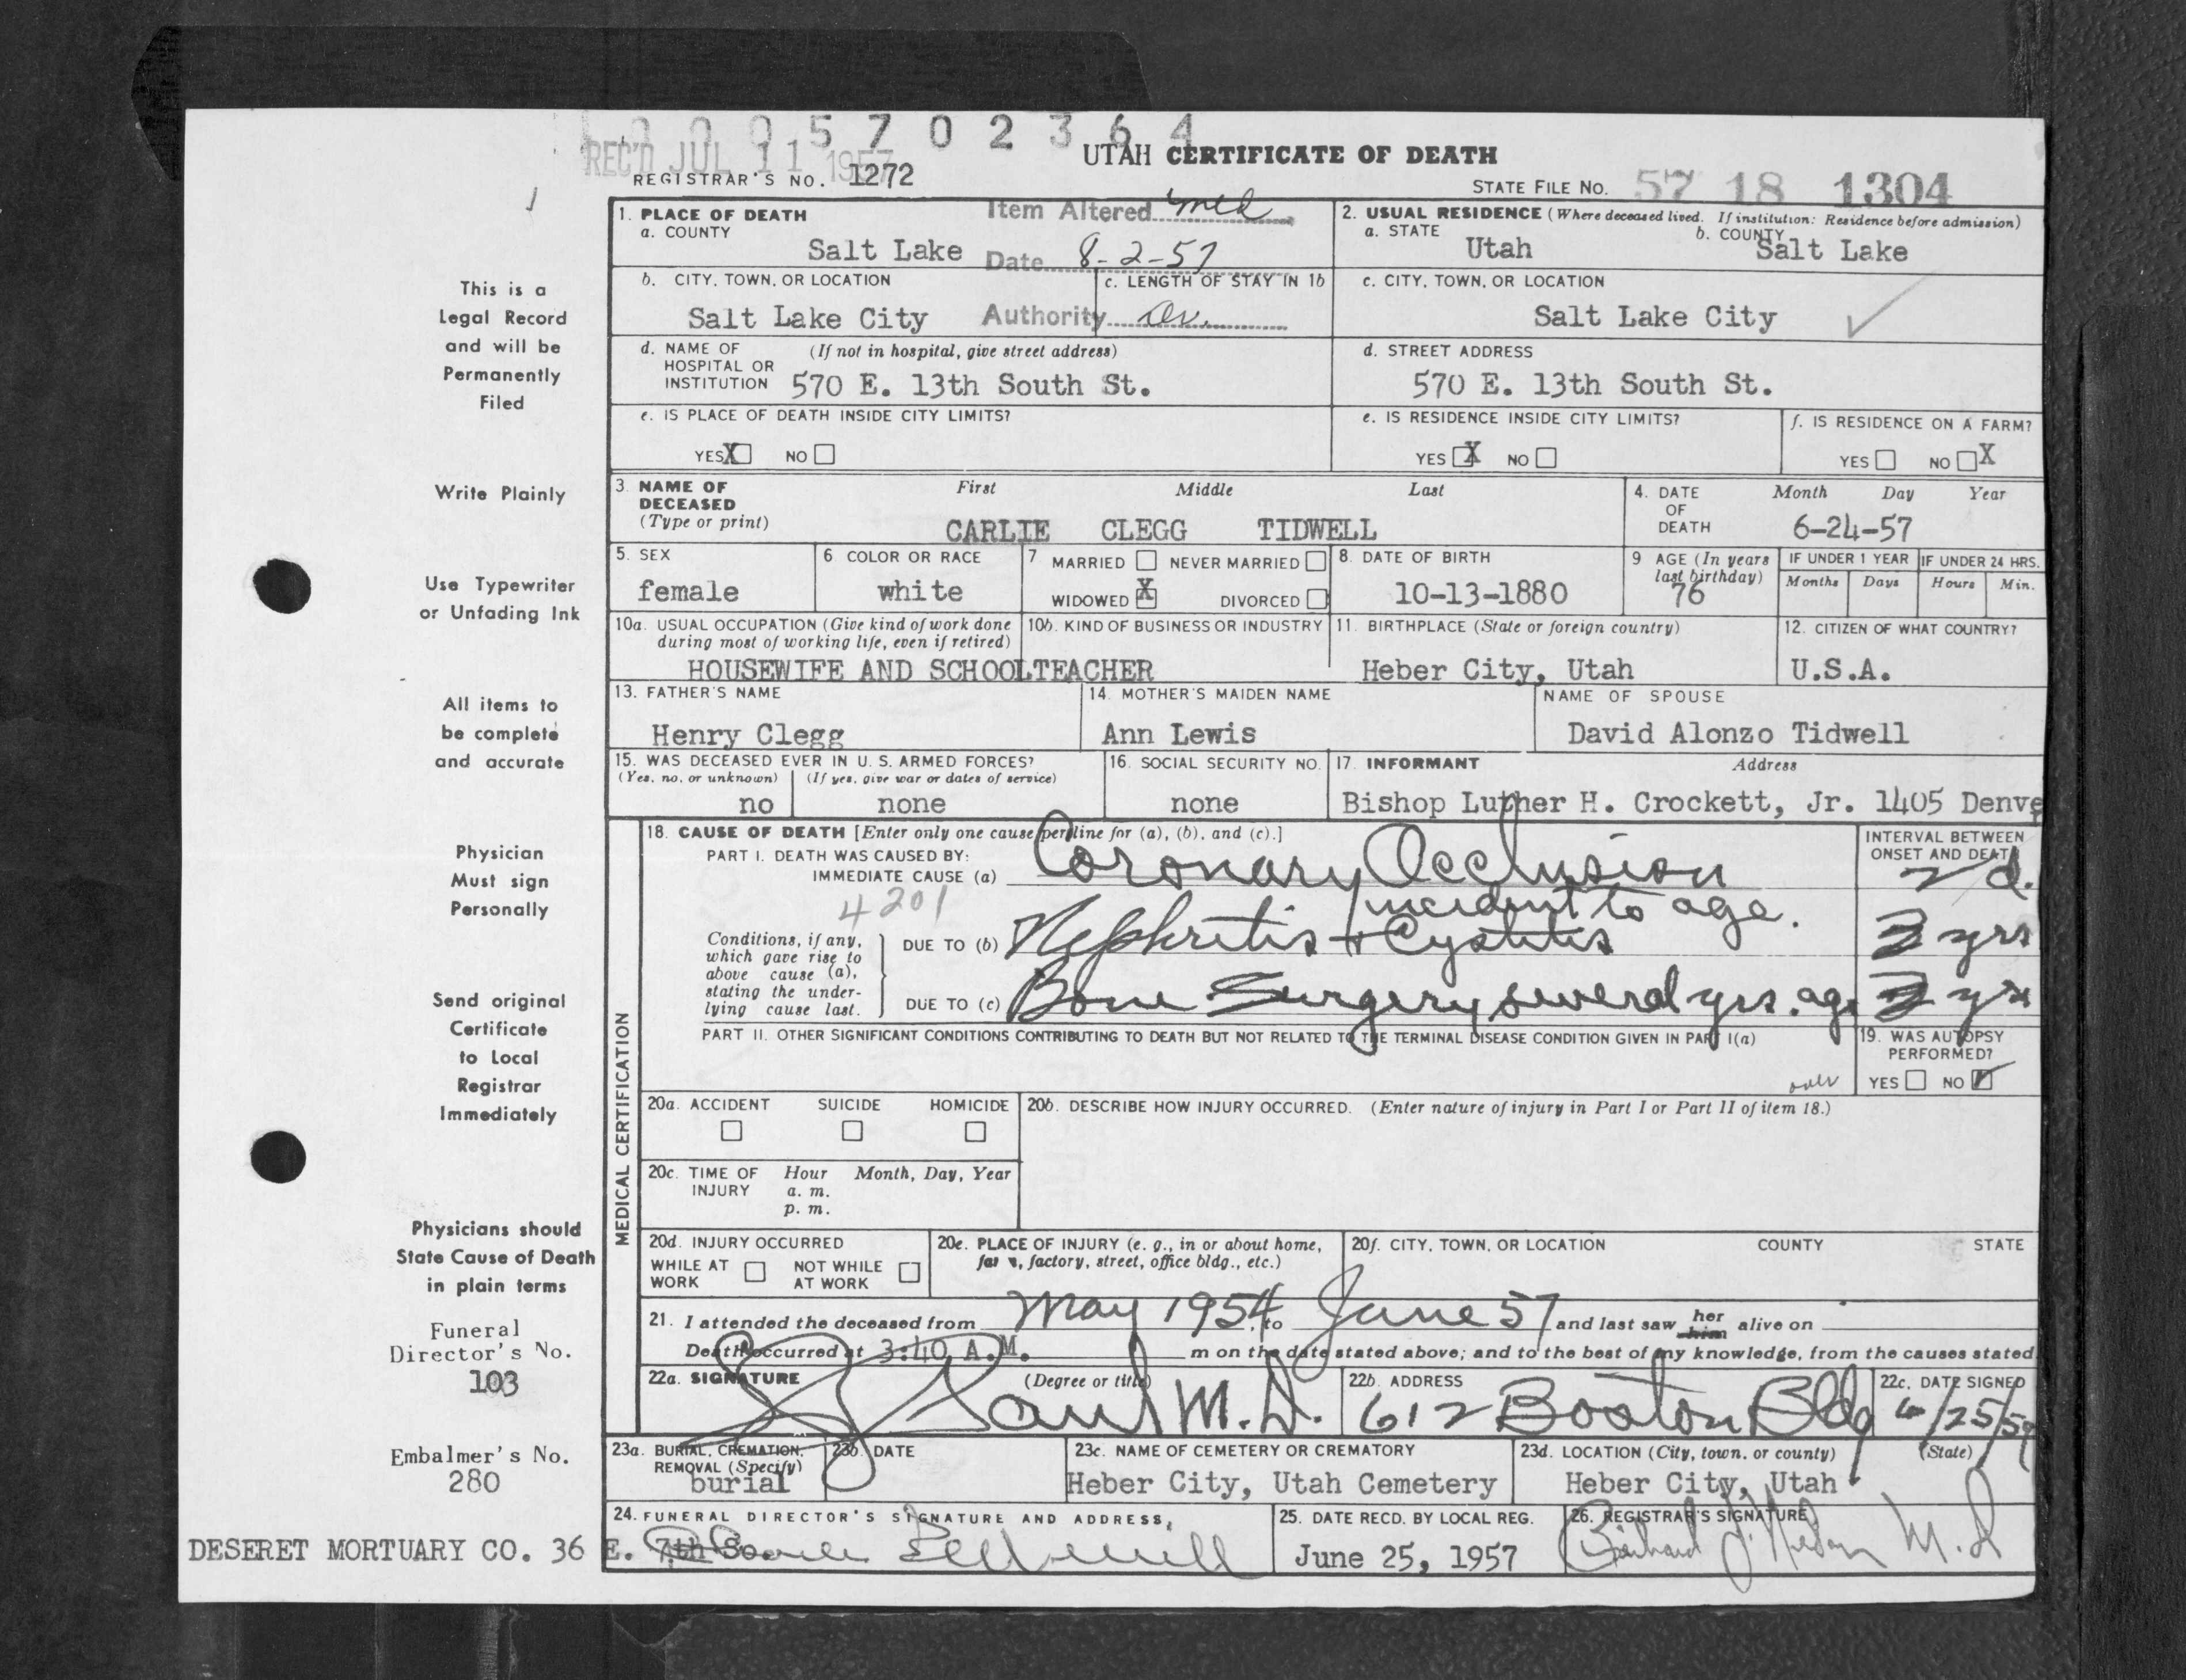 0 0 0 5 7 0 2 3 6 4
REC'D JUL 11 1957
UTAH CERTIFICATE OF DEATH
REGISTRAR'S NO. 1272
STATE FILE NO. 57 18 1304
1. PLACE OF DEATH
a. COUNTY
Salt Lake
Item Altered med
Date 8-2-57
Authority
2. USUAL RESIDENCE (Where deceased lived. If institution: Residence before admission)
a. STATE Utah
b. COUNTY Salt Lake
b. CITY, TOWN, OR LOCATION
Salt Lake City
c. LENGTH OF STAY IN 1b
c. CITY, TOWN, OR LOCATION
Salt Lake City
d. NAME OF HOSPITAL OR INSTITUTION (If not in hospital, give street address)
570 E. 13th South St.
d. STREET ADDRESS
570 E. 13th South St.
e. IS PLACE OF DEATH INSIDE CITY LIMITS?
YES X NO
e. IS RESIDENCE INSIDE CITY LIMITS?
YES X NO
f. IS RESIDENCE ON A FARM?
YES NO X
3. NAME OF DECEASED (Type or print)
First Middle Last
CARLIE CLEGG TIDWELL
4. DATE OF DEATH
Month Day Year
6-24-57
5. SEX
female
6 COLOR OR RACE
white
7 MARRIED NEVER MARRIED
WIDOWED X DIVORCED
8. DATE OF BIRTH
10-13-1880
9 AGE (In years last birthday)
76
IF UNDER 1 YEAR
Months Days
IF UNDER 24 HRS.
Hours Min.
10a. USUAL OCCUPATION (Give kind of work done during most of working life, even if retired)
HOUSEWIFE AND SCHOOLTEACHER
10b. KIND OF BUSINESS OR INDUSTRY
11. BIRTHPLACE (State or foreign country)
Heber City, Utah
12. CITIZEN OF WHAT COUNTRY?
U.S.A.
13. FATHER'S NAME
Henry Clegg
14. MOTHER'S MAIDEN NAME
Ann Lewis
NAME OF SPOUSE
David Alonzo Tidwell
15. WAS DECEASED EVER IN U. S. ARMED FORCES?
(Yes, no, or unknown) (If yes, give war or dates of service)
no none
16. SOCIAL SECURITY NO.
none
17. INFORMANT Address
Bishop Luther H. Crockett, Jr. 1405 Denve
MEDICAL CERTIFICATION
18. CAUSE OF DEATH [Enter only one cause per line for (a), (b), and (c).]
PART I. DEATH WAS CAUSED BY:
IMMEDIATE CAUSE (a) Coronary Occlusion
incident to age.
4201
INTERVAL BETWEEN ONSET AND DEATH
2 d.
Conditions, if any, which gave rise to above cause (a), stating the underlying cause last.
DUE TO (b) Nephritis + Cystitis
3 yrs
DUE TO (c) Bone Surgery several yrs. ago
3 yrs
PART II. OTHER SIGNIFICANT CONDITIONS CONTRIBUTING TO DEATH BUT NOT RELATED TO THE TERMINAL DISEASE CONDITION GIVEN IN PART I(a)
over
19. WAS AUTOPSY PERFORMED?
YES NO
20a. ACCIDENT SUICIDE HOMICIDE
20b. DESCRIBE HOW INJURY OCCURRED. (Enter nature of injury in Part I or Part II of item 18.)
20c. TIME OF INJURY
Hour Month, Day, Year
a. m.
p. m.
20d. INJURY OCCURRED
WHILE AT WORK NOT WHILE AT WORK
20e. PLACE OF INJURY (e. g., in or about home, farm, factory, street, office bldg., etc.)
20f. CITY, TOWN, OR LOCATION COUNTY STATE
21. I attended the deceased from May 1954, to June 57 and last saw her him alive on
Death occurred at 3:40 A.M. m on the date stated above; and to the best of my knowledge, from the causes stated
22a. SIGNATURE (Degree or title)
M.D.
22b. ADDRESS
612 Boston Bldg
22c. DATE SIGNED
6/25/57
23a. BURIAL, CREMATION, REMOVAL (Specify)
burial
23b. DATE
23c. NAME OF CEMETERY OR CREMATORY
Heber City, Utah Cemetery
23d. LOCATION (City, town, or county) (State)
Heber City, Utah
24. FUNERAL DIRECTOR'S SIGNATURE AND ADDRESS,
DESERET MORTUARY CO. 36 E. 7th So.
25. DATE RECD. BY LOCAL REG.
June 25, 1957
26. REGISTRAR'S SIGNATURE
M.D
This is a
Legal Record
and will be
Permanently
Filed
Write Plainly
Use Typewriter
or Unfading Ink
All items to
be complete
and accurate
Physician
Must sign
Personally
Send original
Certificate
to Local
Registrar
Immediately
Physicians should
State Cause of Death
in plain terms
Funeral
Director's No.
103
Embalmer's No.
280